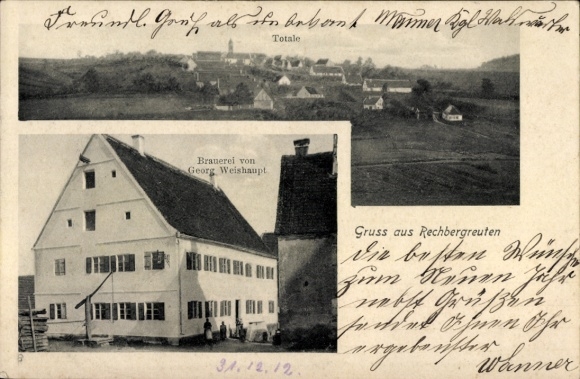 Freundl. Gruß als unbekant Wanner Kgl Waldwärter
Totale
Brauerei von
Georg Weishaupt.
Gruss aus Rechbergreuten
die besten Wünsche
zum Neuen Jahr
nebst Grüßen
sendet Ihnen Ihr
ergebenster
Wanner
31.12.12.